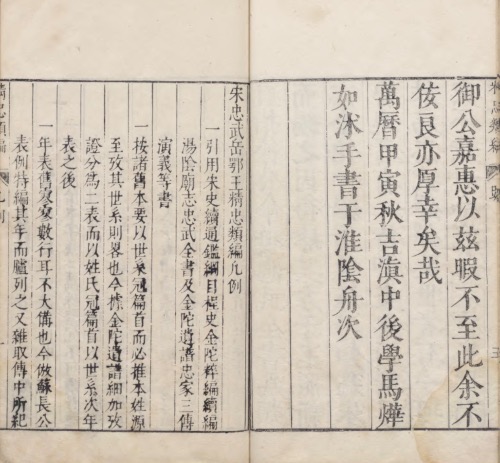 御公嘉惠以茲暇不至此余不
佞良亦厚幸矣哉
萬曆甲寅秋吉滇中後學馬燁
如沐手書于淮陰舟次
宋忠武岳鄂王精忠類編凡例
一引用宋史續通鑑綱目桯史金陀粹編續編
湯陰廟志忠武全書及金陀遺譜忠家三傳
演義等書
一按諸舊本要以世系冠篇首而必推本姓源
至攷其世系則畧也今據金陀遺譜細加攷
證分為二表而以姓氏冠篇首以世系次年
表之後
一年表舊寂寂數行耳不大備也今倣蘇長公
表例特編其年而臚列之又雜取傳中所紀